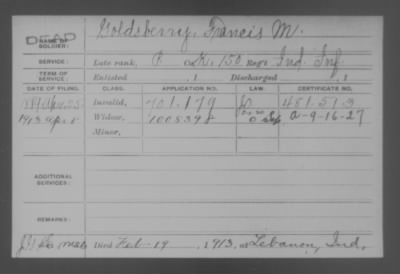 DEAD
NAME OF SOLDIER:
Goldsberry, Francis M.
SERVICE:
Late rank, P Co K, 150 Reg't Ind Inf.
TERM OF SERVICE:
Enlisted , 1 Discharged , 1
DATE OF FILING. CLASS. APPLICATION NO. LAW. CERTIFICATE NO.
Apr 25 Invalid, 701.179 481.513
1913 Apr 8 Widow, 1005398 a-9-16-27
Minor,
ADDITIONAL SERVICES:
REMARKS:
Died Feb-19, 1913, at Lebanon, Ind.